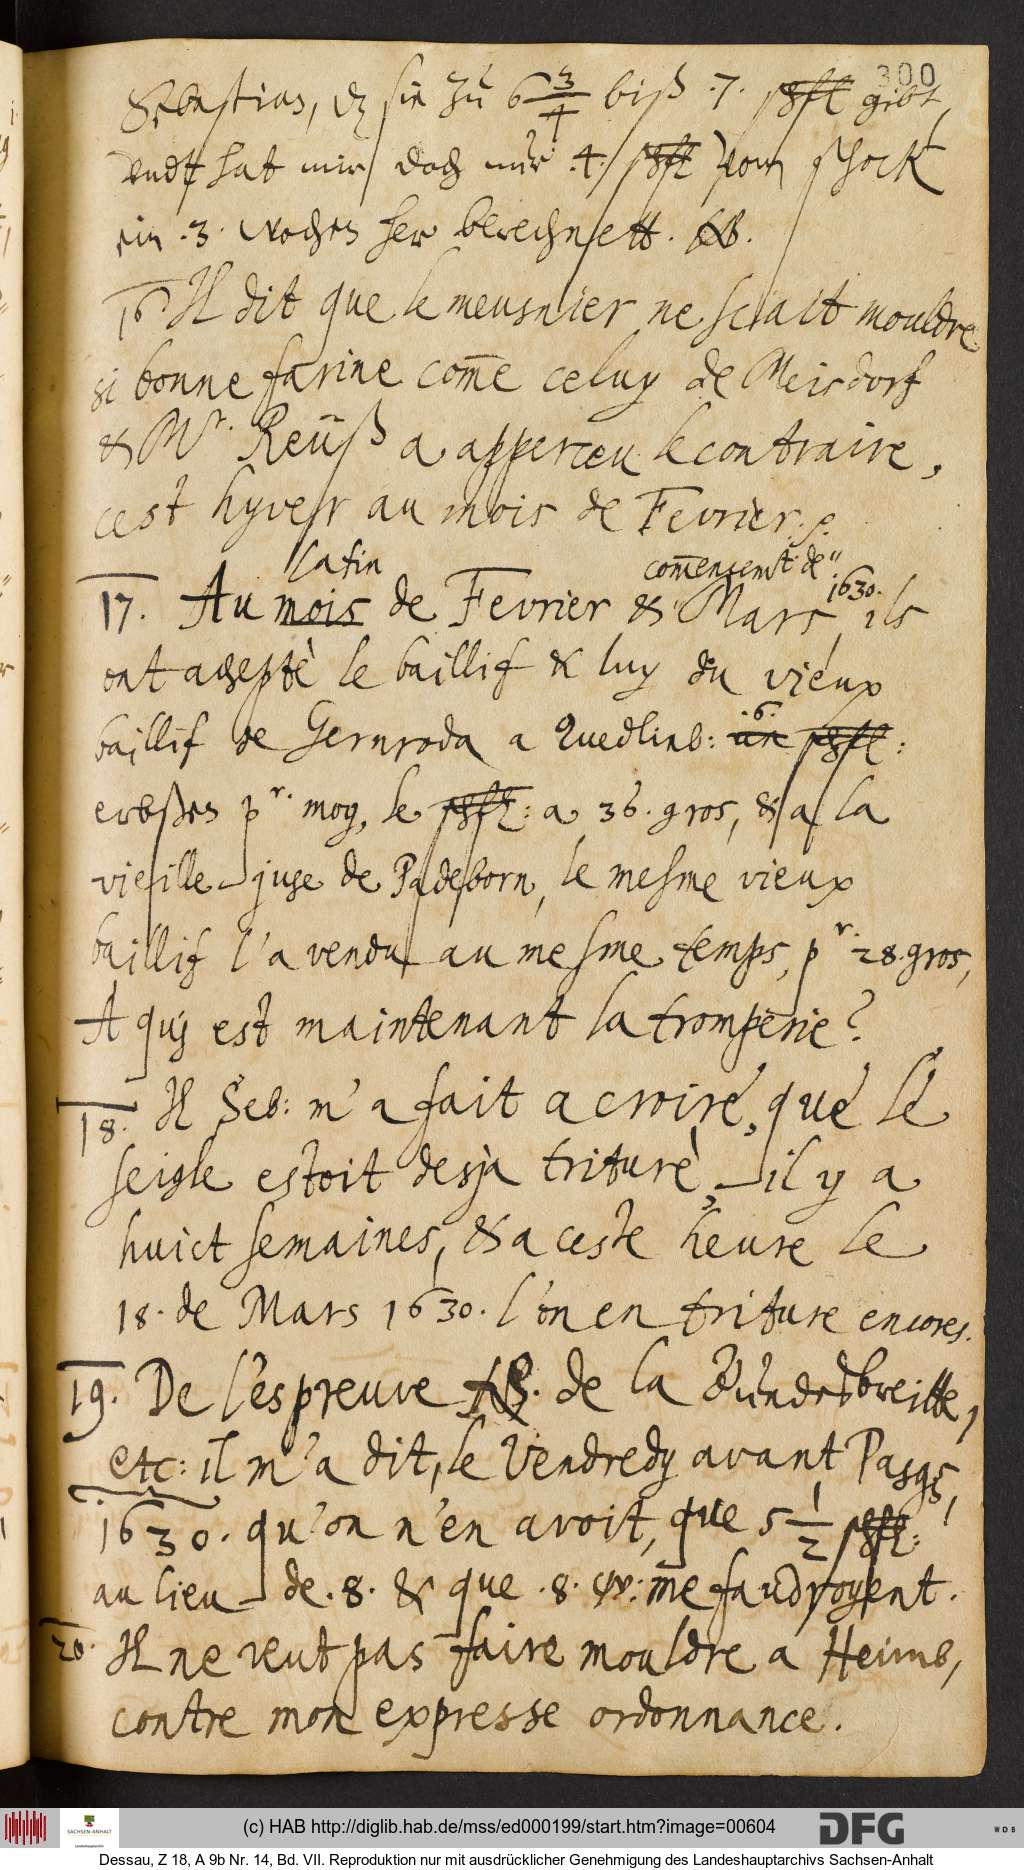 300
Sebastian, daß sie zu 6 3/4 biß .7. schfl gibt,
undt hat mir, doch nur .4. schfl vom schock
ein .3. wochen her berechnett. NB.
16 Il dit que le meusnier ne sciait mouldre
si bonne farine com̄e celuy de Meisdorf
& Mr. Reüß a apperceu le contraire,
cest hyver au mois de Fevrier. p.
la fin com̄encemt. de"
17. Au mois de Fevrier & Mars 1630. ils
ont achepté le baillif & luy du vieux
baillif de Gernroda a Quedlinb: .6. un schfl:
erbßen pr. moy, le schfl: a 36. gros, & a la
vieille juge de Padeborn, le mesme vieux
baillif l'a vendu au mesme temps, pr. 28. gros,
A quj est maintenant la tromperie?
18. Il Seb: m'a fait a croire, que le
seigle estoit desja trituré, il y a
huict semaines, & a ceste heure le
18. de Mars 1630. l'on en triture encores.
19. De l'espreuve NB. de la breitte,
etc: il m'a dit, le Vendredy avant Pasqs,
1630. qu'on n'en avoit, que 5 1/2 schfl:
au lieu de .8. & que .8. me faudroyent.
20. Il ne veut pas faire mouldre a Heimb,
contre mon expresse ordonnance.
(c) HAB http://diglib.hab.de/mss/ed000199/start.htm?image=00604
SACHSEN-ANHALT
DFG
WDB
Dessau, Z 18, A 9b Nr. 14, Bd. VII. Reproduktion nur mit ausdrücklicher Genehmigung des Landeshauptarchivs Sachsen-Anhalt